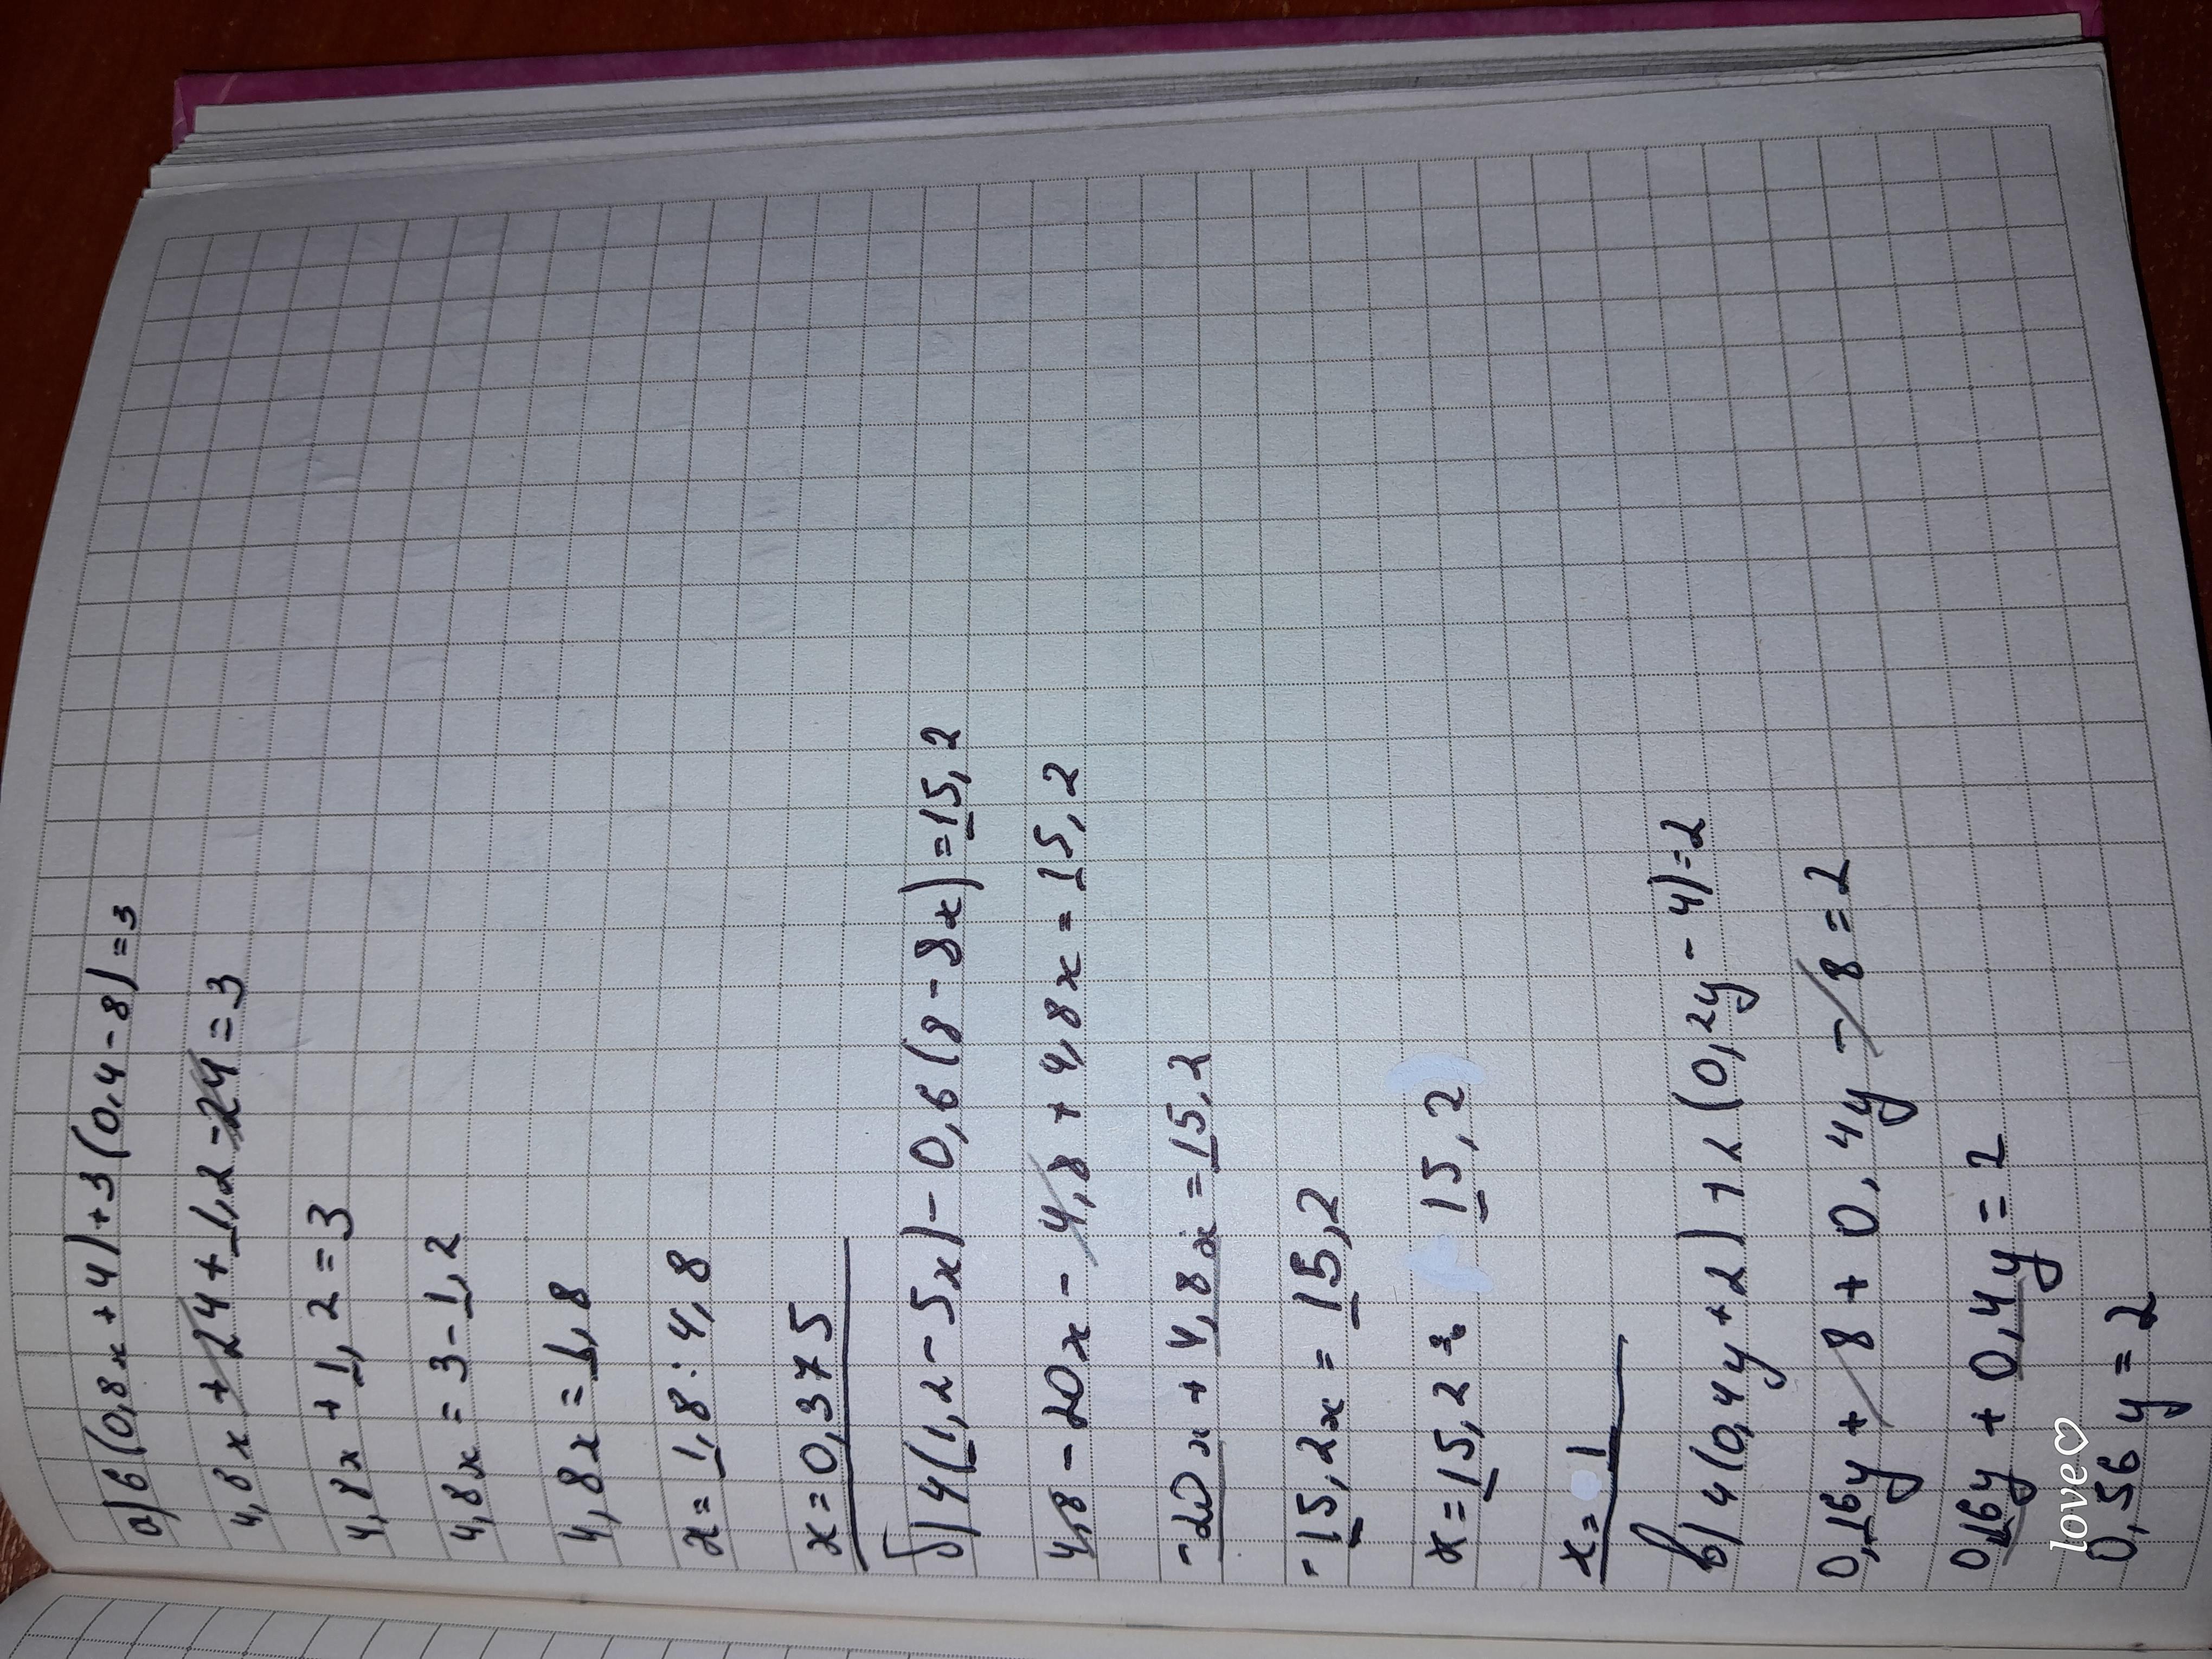 а) 6(0,8x+4)+3(0,4-8)=3
4,8x+24+1,2-24=3
4,8x+1,2=3
4,8x=3-1,2
4,8x=1,8
x=1,8:4,8
x=0,375
б) 4(1,2-5x)-0,6(8-8x)=15,2
4,8-20x-4,8+4,8x=15,2
-20x+4,8x=15,2
-15,2x=15,2
x=15,2: 15,2
x= 1
в) 4(0,4y+2)+2(0,2y-4)=2
0,16y+8+0,4y-8=2
0,16y+0,4y=2
0,56y=2
love♡